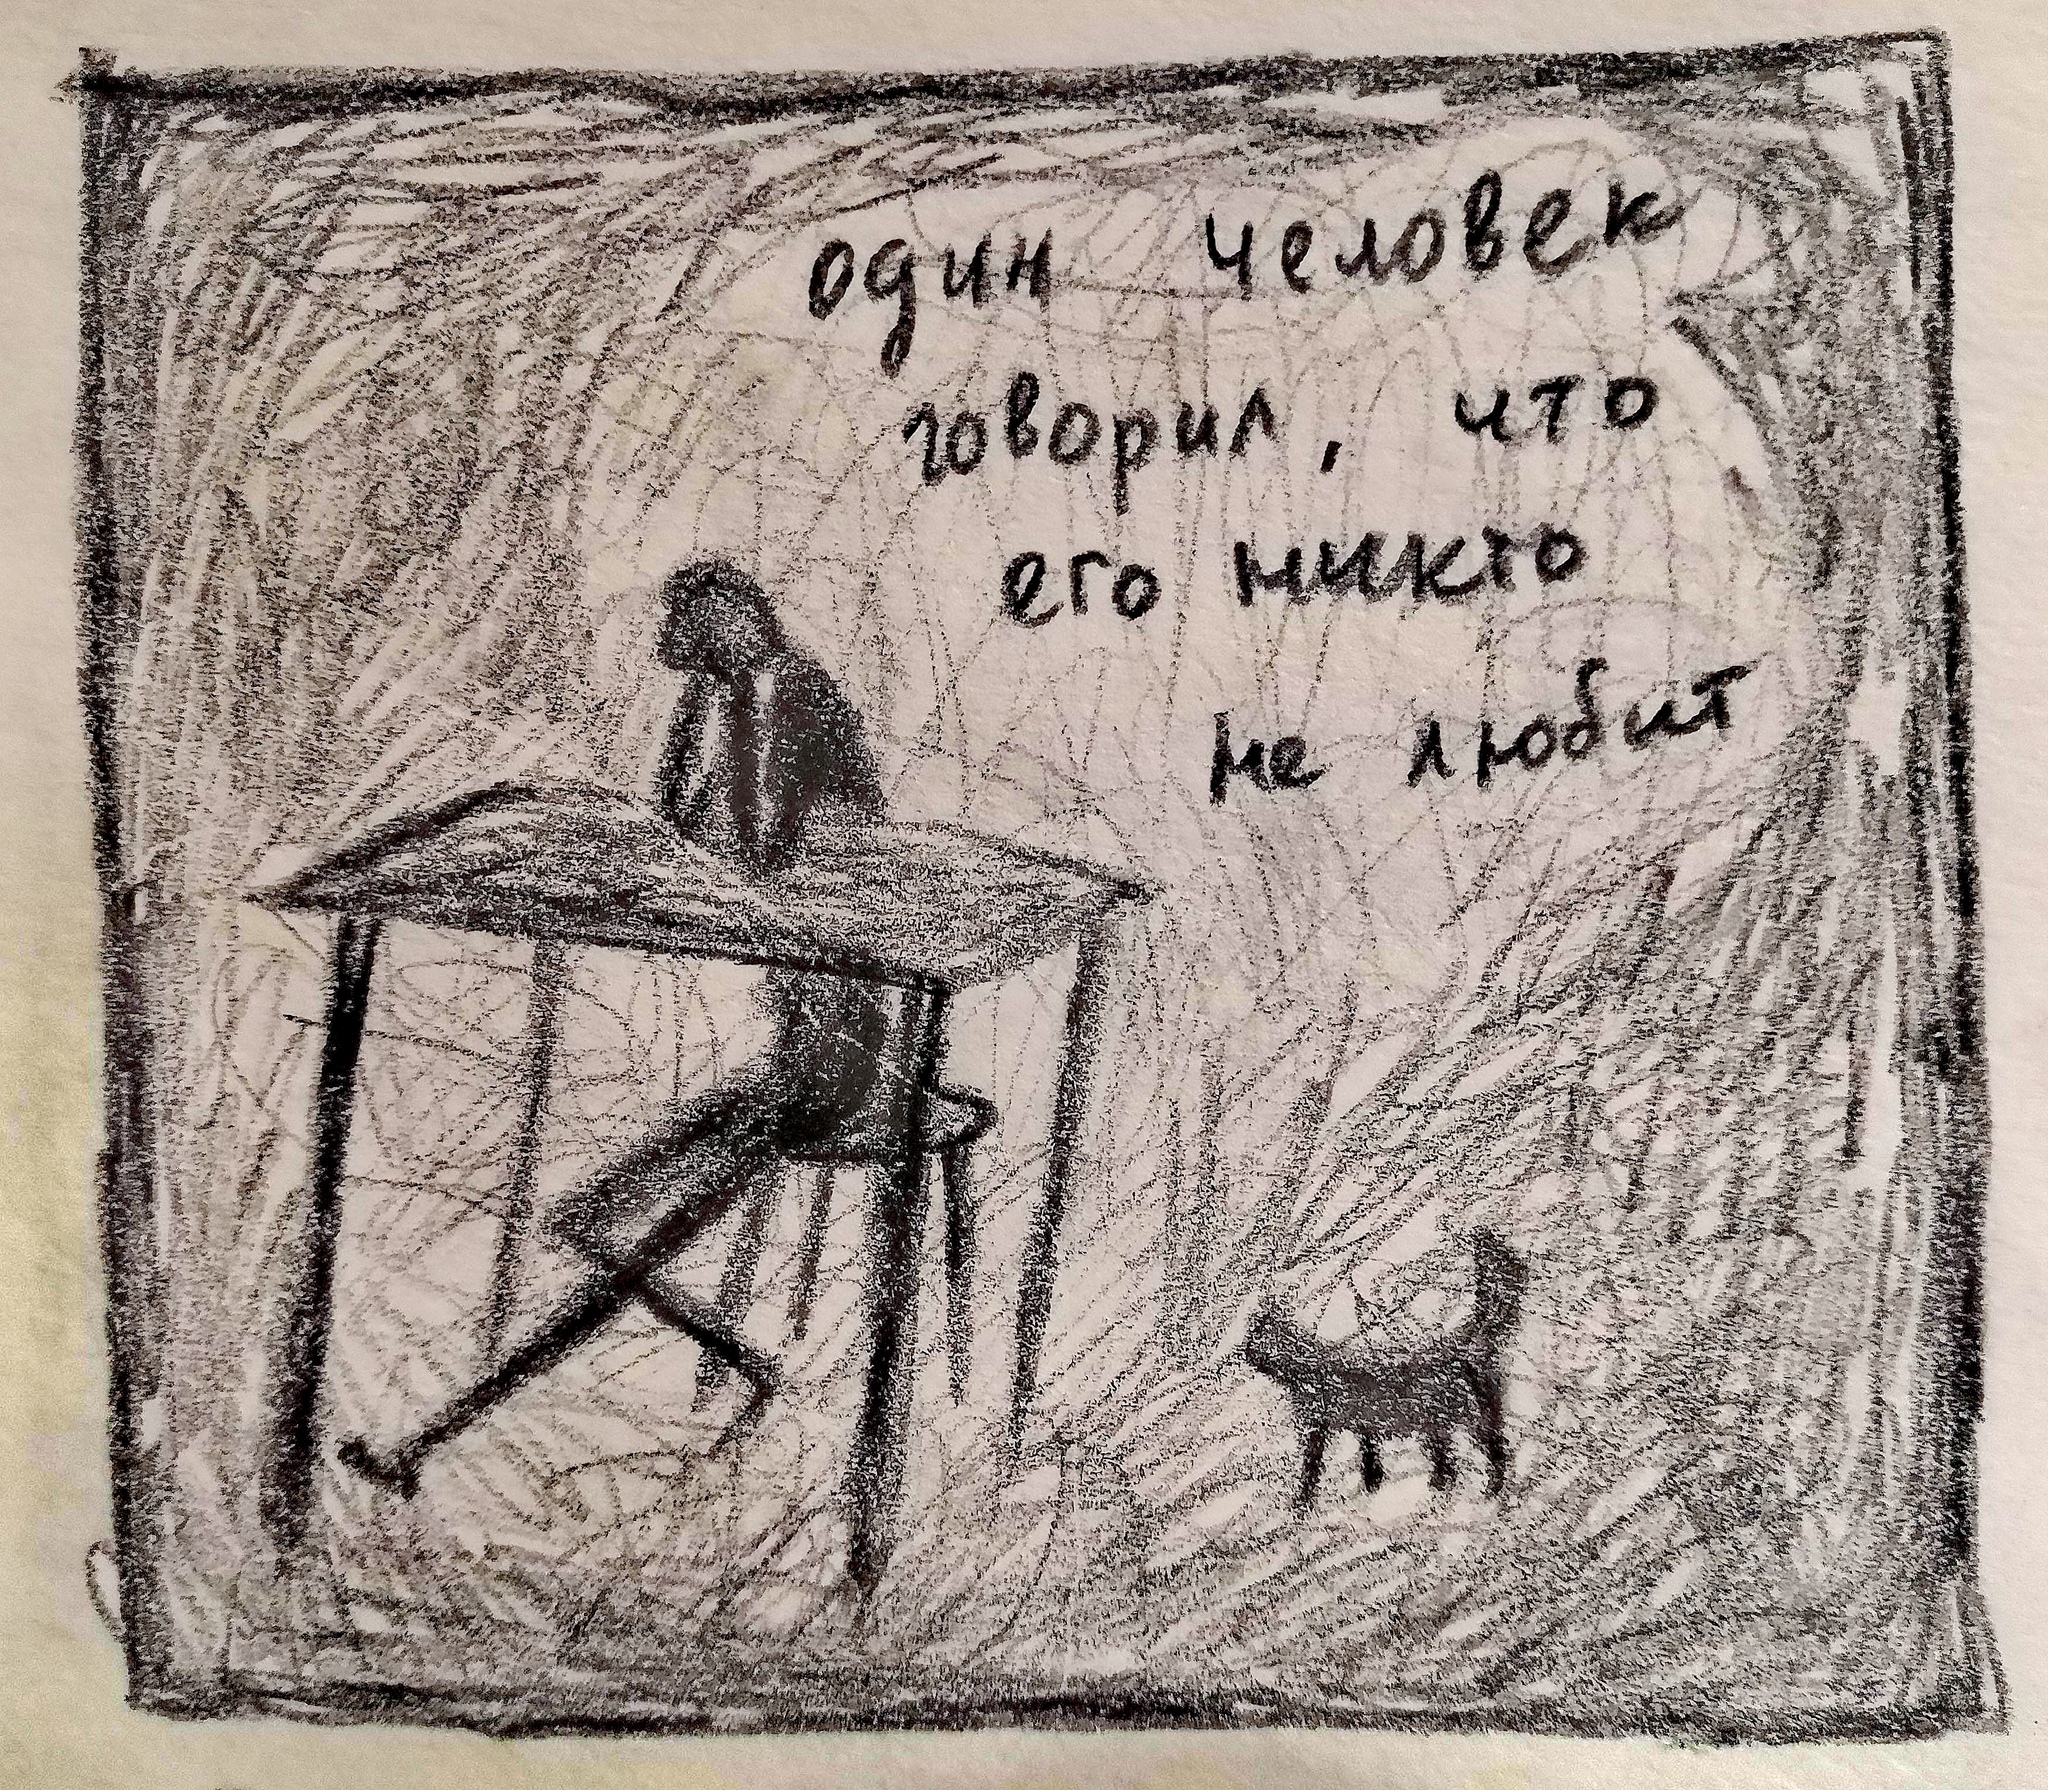 один человек
говорил, что
его никто
не любит